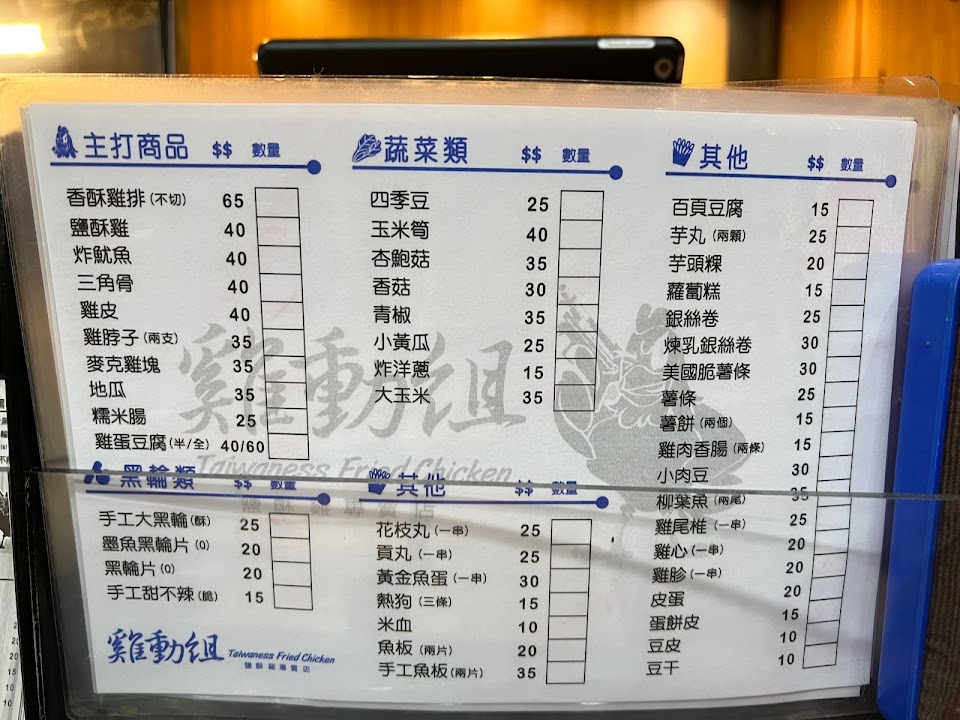 主打商品 $$ 數量
香酥雞排(不切) 65
鹽酥雞 40
炸魷魚 40
三角骨 40
雞皮 40
雞脖子(兩支) 35
麥克雞塊 35
地瓜 35
糯米腸 25
雞蛋豆腐(半/全) 40/60
黑輪類 $$ 數量
手工大黑輪(酥) 25
墨魚黑輪片(Q) 20
黑輪片(Q) 20
手工甜不辣(脆) 15
雞動組 Taiwaness Fried Chicken
鹽酥雞專賣店
蔬菜類 $$ 數量
四季豆 25
玉米筍 40
杏鮑菇 35
香菇 30
青椒 35
小黃瓜 25
炸洋蔥 15
大玉米 35
雞動組
Taiwaness Fried Chicken
鹽酥雞專賣店
其他 $$ 數量
花枝丸(一串) 25
貢丸(一串) 25
黃金魚蛋(一串) 30
熱狗(三條) 15
米血 10
魚板(兩片) 20
手工魚板(兩片) 35
其他 $$ 數量
百頁豆腐 15
芋丸(兩顆) 25
芋頭粿 20
蘿蔔糕 15
銀絲卷 25
煉乳銀絲卷 30
美國脆薯條 30
薯條 25
薯餅(兩個) 15
雞肉香腸(兩條) 15
小肉豆 30
柳葉魚(兩尾) 35
雞尾椎(一串) 25
雞心(一串) 20
雞胗(一串) 20
皮蛋 20
蛋餅皮 15
豆皮 10
豆干 10